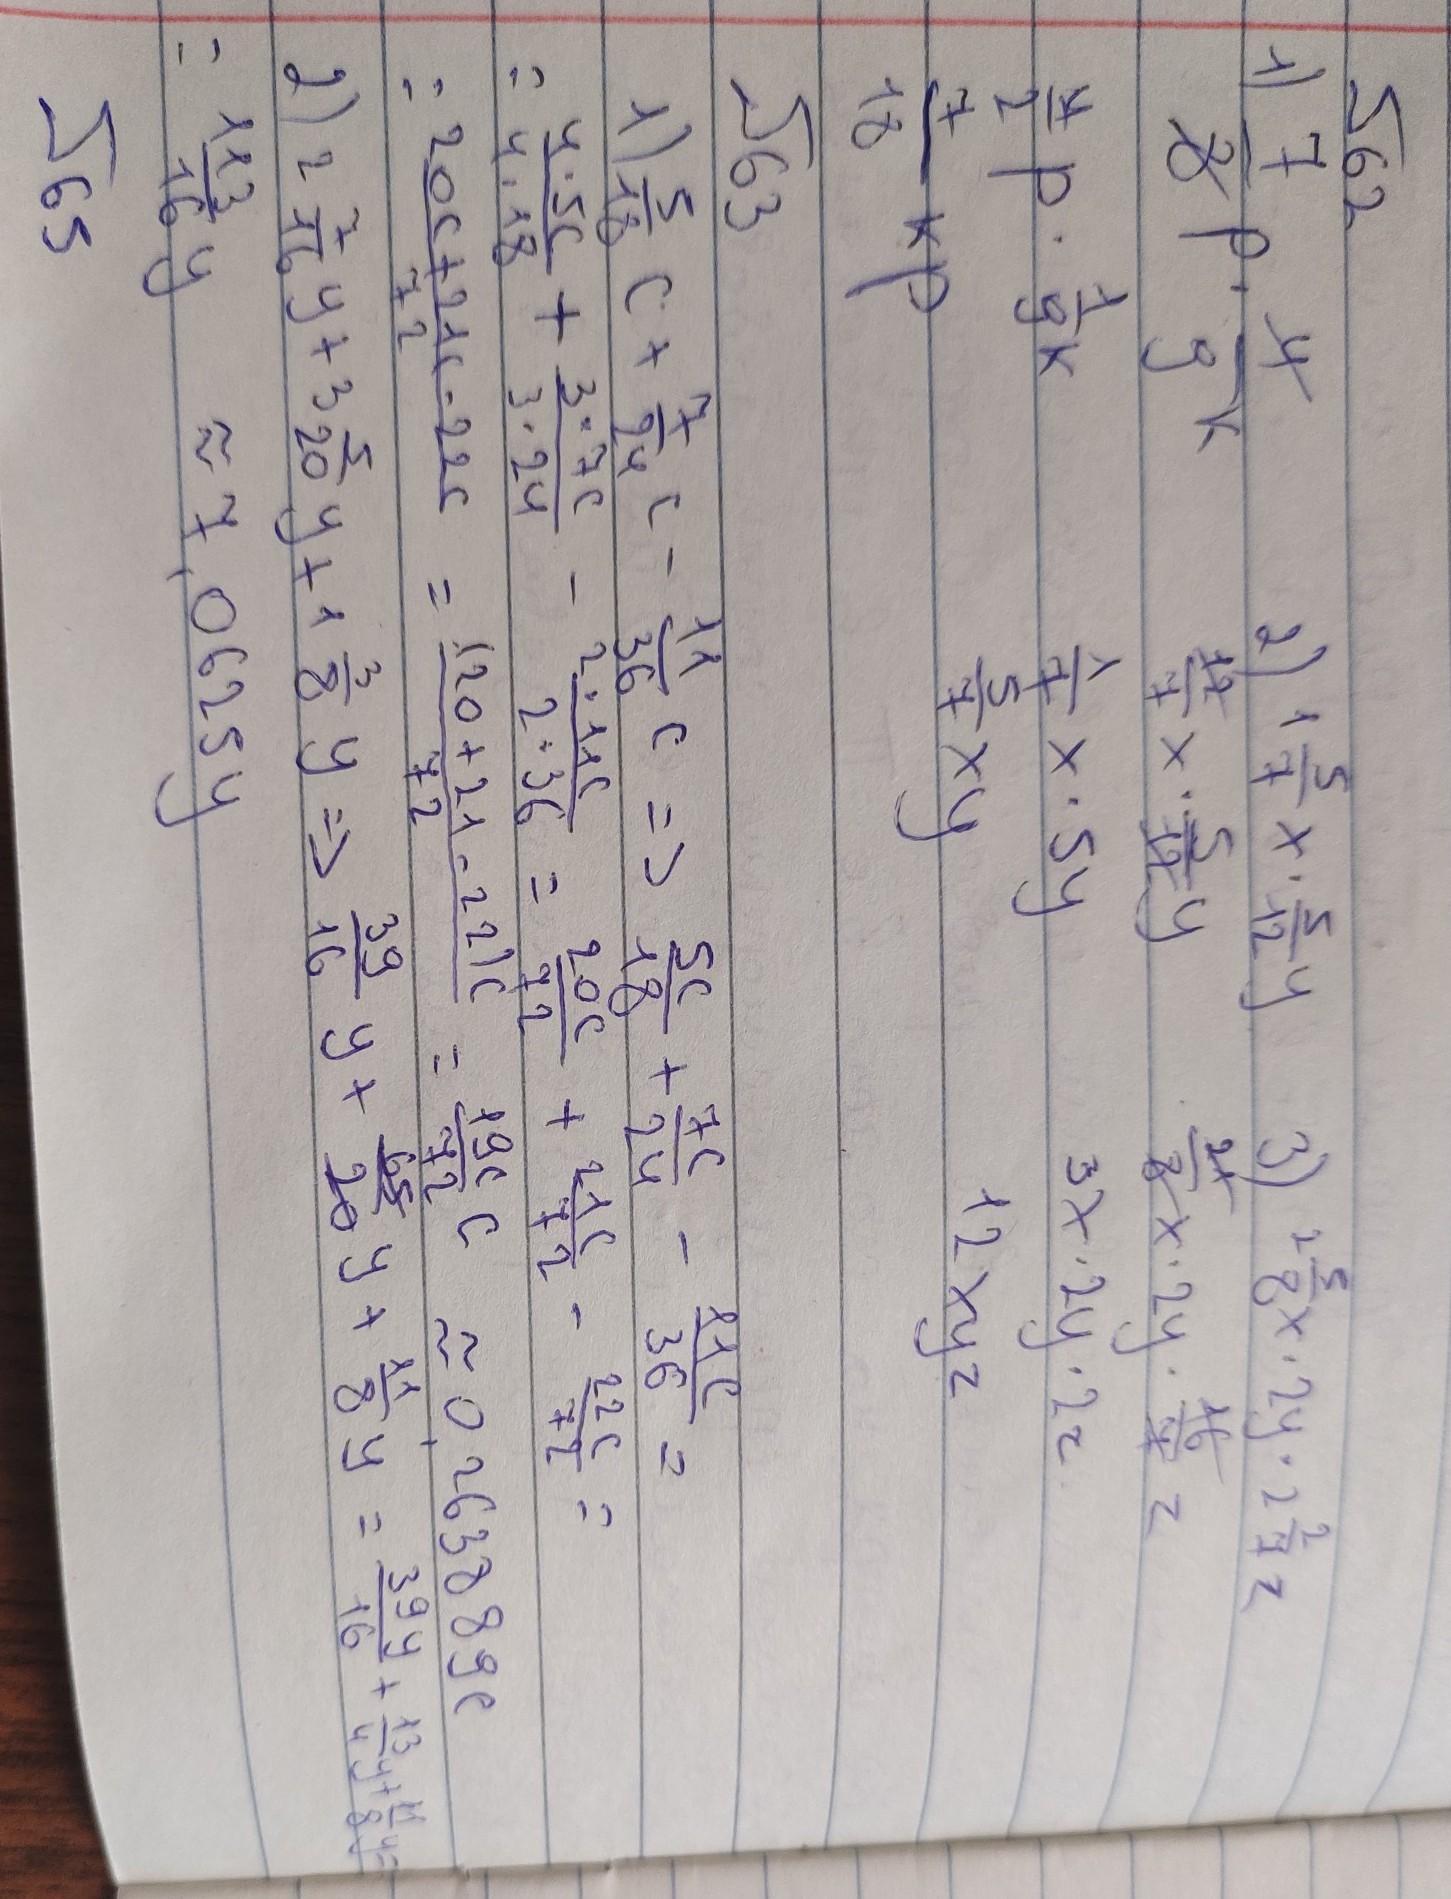 562
1) 7/8 p · 4/9 k 2) 1 5/7 x · 5/12 y 3) 2 5/8 x · 2y · 2 2/7 z
12/7 x · 5/12 y 21/8 x · 2y · 16/7 z
7/2 p · 1/9 k 1/7 x · 5y 3x · 2y · 2z
7/18 kp 5/7 xy 12xyz
563
1) 5/18 c + 7/24 c - 11/36 c => 5c/18 + 7c/24 - 11c/36 =
= 4·5c/4·18 + 3·7c/3·24 - 2·11c/2·36 = 20c/72 + 21c/72 - 22c/72 =
= 20c+21c-22c/72 = (20+21-22)c/72 = 19c/72 c ≈ 0,263889c
2) 2 7/16 y + 3 5/20 y + 1 3/8 y => 39/16 y + 65/20 y + 11/8 y = 39y/16 + 13/4 y + 11/8 y =
= 113/16 y ≈ 7,0625y
565